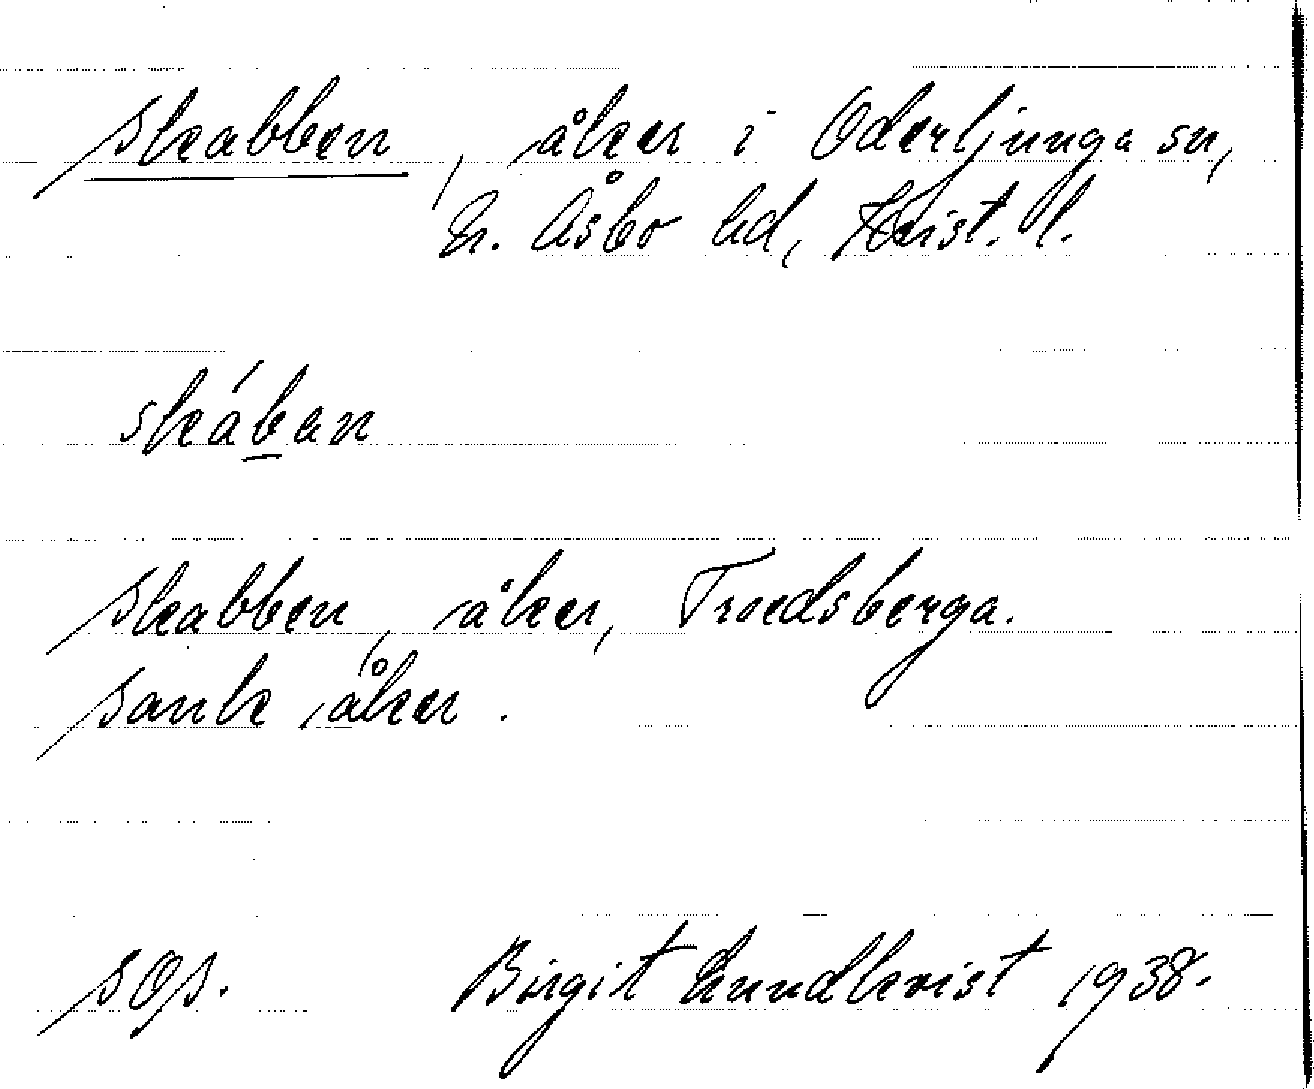 Skabben, åker i Oderljunga sn,
N. Åsbo hd, Krist. l.
skában
Skabben, åker, Troedsberga.
Sank åker.
SOS. Birgit Lundkvist 1938.